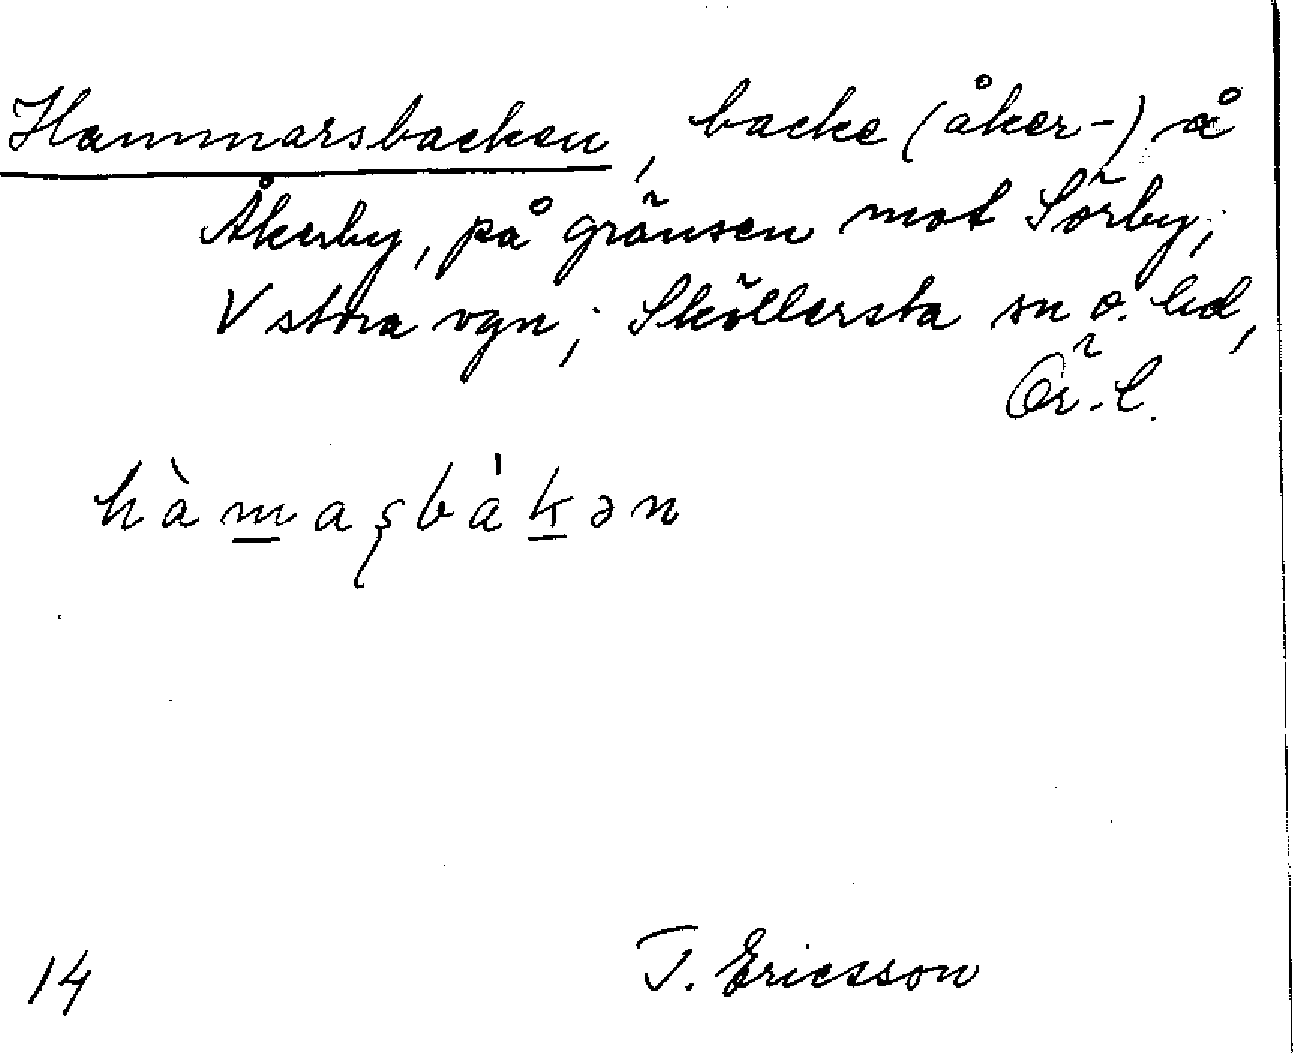 Hammarsbacken, backe (åker-) å
Åkerby, på gränsen mot Sörby;
V stora vgn; Sköllersta sn o. hd,
Ör. l.
hàmaʂbàkən
14
T. Ericsson